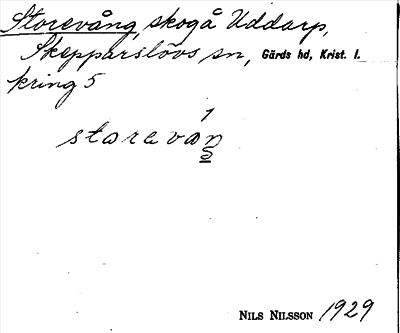 Storevång, skogå Uddarp,
Skepparslövs sn, Gärds hd, Krist. l.
kring 5
storevån
NILS NILSSON 1929